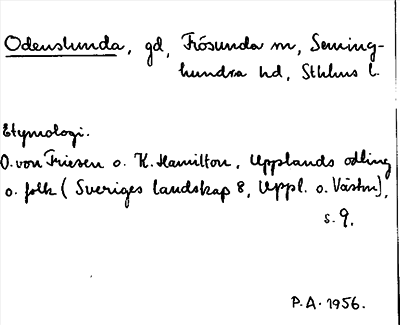 Odenslunda, gd, Frösunda sn, Seming-
hundra hd, Sthlms l.
Etymologi.
O. von Friesen o. H. Hamilton, Upplands odling
o. folk (Sveriges landskap 8, Uppl. o. Västm),
s. 9.
P.A. 1956.